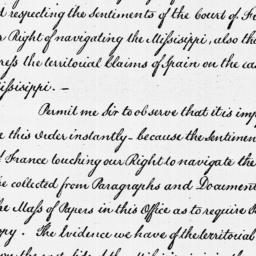 d respecting the Sentiments of the Court of Fr
r Right of navigating the Missisippi, also th
ress the teritorial Claims of Spain on the ea
issisippi. —
Permit me Sir to observe that it is imp
e this Order instantly — because the Sentimen
f France touching our Right to navigate the
e collected from Paragraphs and Document
he Mass of Papers in this Office as to require
opy. The Evidence we have of the territorial